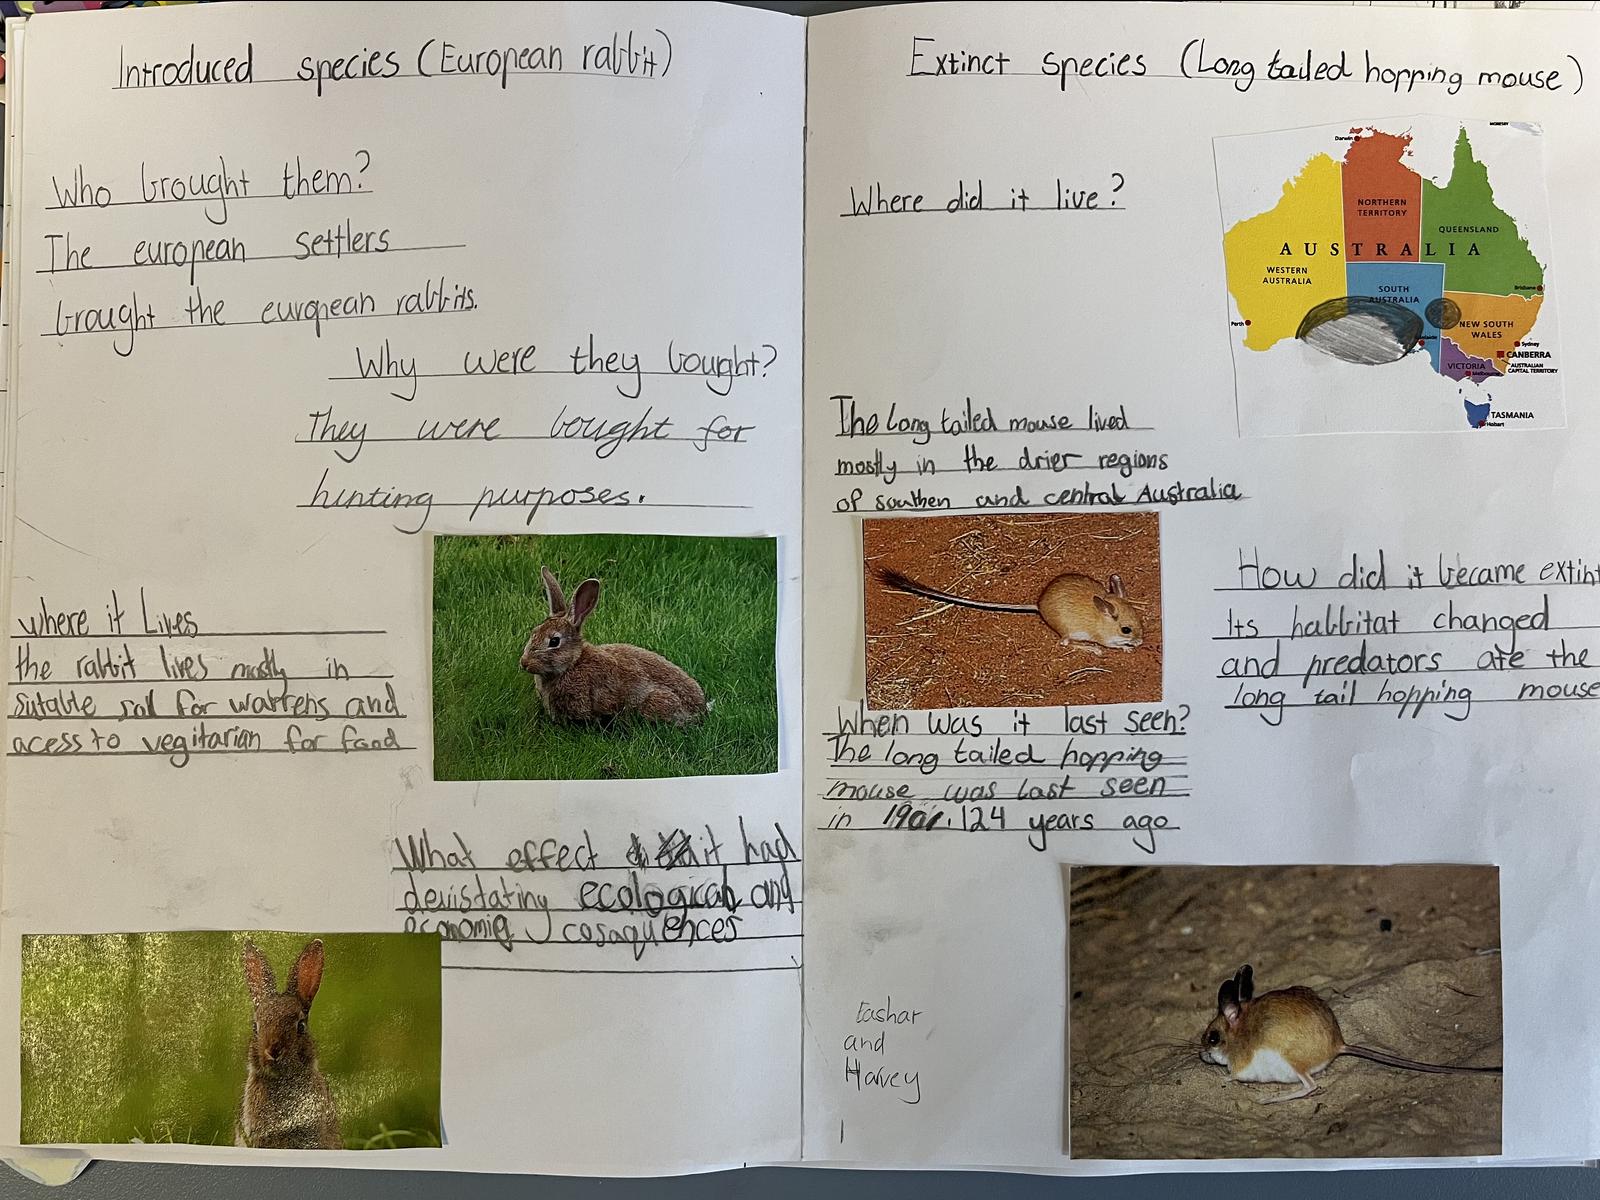 Introduced species (European rabbit)
Who brought them?
The european settlers
brought the european rabbits.
Why were they bought?
They were bought for
hunting purposes.
where it Lives
the rabbit lives mostly in
sutable soil for warrens and
acess to vegitarian for food
What effect it had
devistating ecological and
economic cosaquences
Extinct species (Long tailed hopping mouse)
Where did it live?
MORESBY
Darwin
NORTHERN
TERRITORY
QUEENSLAND
AUSTRALIA
WESTERN
AUSTRALIA
SOUTH
AUSTRALIA
Brisbane
Perth
NEW SOUTH
WALES
Sydney
CANBERRA
AUSTRALIAN
CAPITAL TERRITORY
VICTORIA
Melbourne
TASMANIA
Hobart
The long tailed mouse lived
mostly in the drier regions
of southen and central Australia
How did it became extint
Its habbitat changed
and predators ate the
long tail hopping mouse
When was it last seen?
The long tailed hopping
mouse was last seen
in 1901. 124 years ago
Eashar
and
Harvey